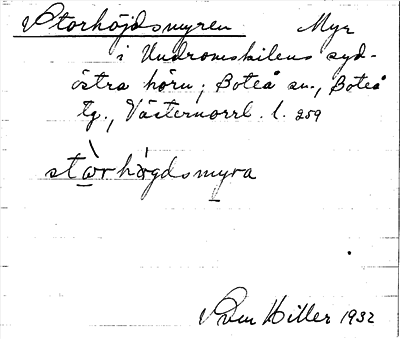 Storhöjdsmyren Myr
i Undromskilens syd-
östra hörn; Boteå sn., Boteå
tg., Västernorrl. l. 259
stòrhögdsmyra
Sven Hiller 1932